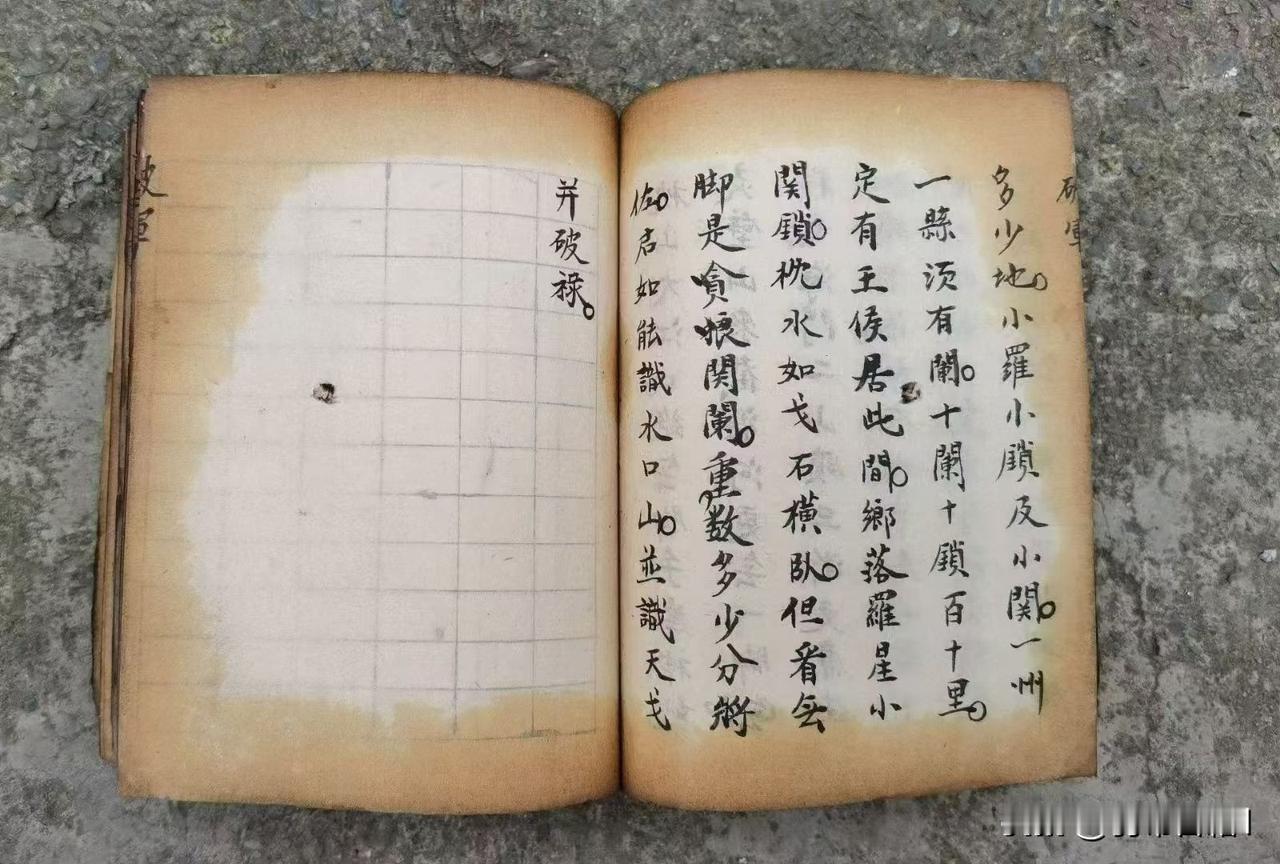 破軍
多少地。小羅小鎖及小関。一州
一縣须有闌。十闌十鎖百十里。
定有王侯居此間。鄉落羅星小
関鎖。枕水如戈石橫卧。但看無
脚是貪狼関闌。重数多少分將
佐。君如能識水口山。並識天戈
并破禄。
破軍